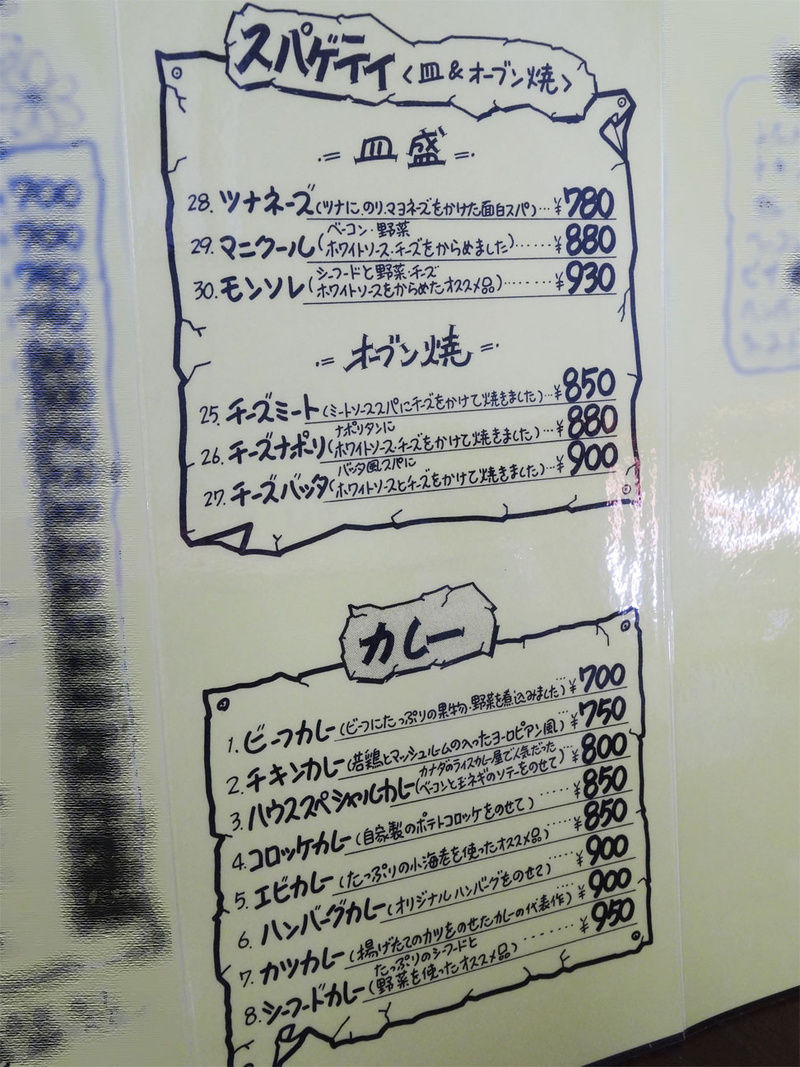 スパゲティ〈皿&オーブン焼〉
皿盛
28. ツナネーズ(ツナに、のり、マヨネーズをかけた面白スパ)…¥780
ベーコン・野菜
29. マニクール(ホワイトソース・チーズをからめました)……¥880
シーフードと野菜・チーズ
30. モンソレ(ホワイトソースをからめたオススメ品)………¥930
オーブン焼
25. チーズミート(ミートソーススパにチーズをかけて焼きました)…¥850
ナポリタンに
26. チーズナポリ(ホワイトソース・チーズをかけて焼きました)…¥880
バッタ風スパに
27. チーズバッタ(ホワイトソースとチーズをかけて焼きました)…¥900
カレー
1. ビーフカレー(ビーフにたっぷりの果物・野菜を煮込みました)¥700
2. チキンカレー(若鶏とマッシュルームのへったヨーロピアン風)¥750
カナダのライスカレー屋で人気だった
3. ハウススペシャルカレー(ベーコンと玉ネギのソテーをのせて)¥800
4. コロッケカレー(自家製のポテトコロッケをのせて)……¥850
5. エビカレー(たっぷりの小海老を使ったオススメ品)……¥850
6. ハンバーグカレー(オリジナルハンバーグをのせて)……¥900
7. カツカレー(揚げたてのカツをのせたカレーの代表作)¥900
たっぷりのシーフードと
8. シーフードカレー(野菜を使ったオススメ品)………¥950
900